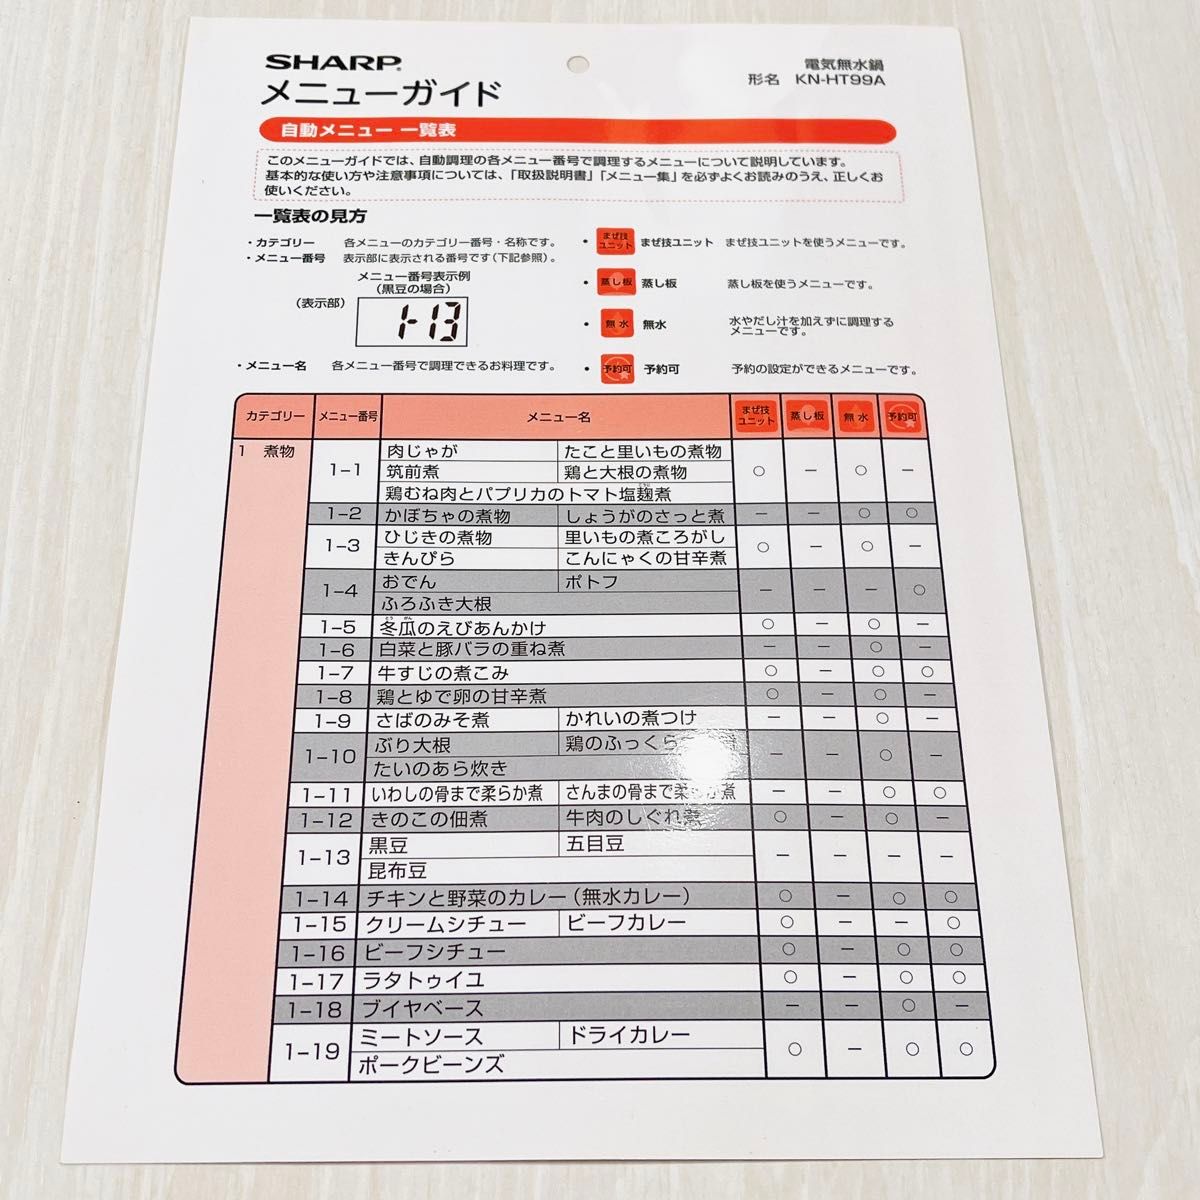 SHARP
メニューガイド
電気無水鍋
形名 KN-HT99A
自動メニュー 一覧表
このメニューガイドでは、自動調理の各メニュー番号で調理するメニューについて説明しています。
基本的な使い方や注意事項については、「取扱説明書」「メニュー集」を必ずよくお読みのうえ、正しくお
使いください。
一覧表の見方
・カテゴリー 各メニューのカテゴリー番号・名称です。
・メニュー番号 表示部に表示される番号です(下記参照)。
メニュー番号表示例
(黒豆の場合)
(表示部)
1-13
・メニュー名 各メニュー番号で調理できるお料理です。
・ まぜ技ユニット まぜ技ユニット まぜ技ユニットを使うメニューです。
・ 蒸し板 蒸し板 蒸し板を使うメニューです。
・ 無水 無水 水やだし汁を加えずに調理する
メニューです。
・ 予約可 予約可 予約の設定ができるメニューです。
カテゴリー メニュー番号 メニュー名 まぜ技ユニット 蒸し板 無水 予約可
1 煮物
1-1 肉じゃが たこと里いもの煮物 ○ − ○ −
筑前煮 鶏と大根の煮物
鶏むね肉とパプリカのトマト塩麹煮
1-2 かぼちゃの煮物 しょうがのさっと煮 − − ○ ○
1-3 ひじきの煮物 里いもの煮ころがし ○ − ○ −
きんぴら こんにゃくの甘辛煮
1-4 おでん ポトフ − − − ○
ふろふき大根
1-5 冬瓜のえびあんかけ ○ − ○ −
1-6 白菜と豚バラの重ね煮 − − ○ −
1-7 牛すじの煮こみ ○ − ○ ○
1-8 鶏とゆで卵の甘辛煮 ○ − ○ −
1-9 さばのみそ煮 かれいの煮つけ − − ○ −
1-10 ぶり大根 鶏のふっくら − − ○ −
たいのあら炊き
1-11 いわしの骨まで柔らか煮 さんまの骨まで柔らか煮 − − ○ ○
1-12 きのこの佃煮 牛肉のしぐれ煮 ○ − ○ −
1-13 黒豆 五目豆 − − − −
昆布豆
1-14 チキンと野菜のカレー(無水カレー) ○ − ○ ○
1-15 クリームシチュー ビーフカレー ○ − − ○
1-16 ビーフシチュー ○ − ○ ○
1-17 ラタトゥイユ ○ − ○ ○
1-18 ブイヤベース − − ○ −
1-19 ミートソース ドライカレー ○ − ○ ○
ポークビーンズ